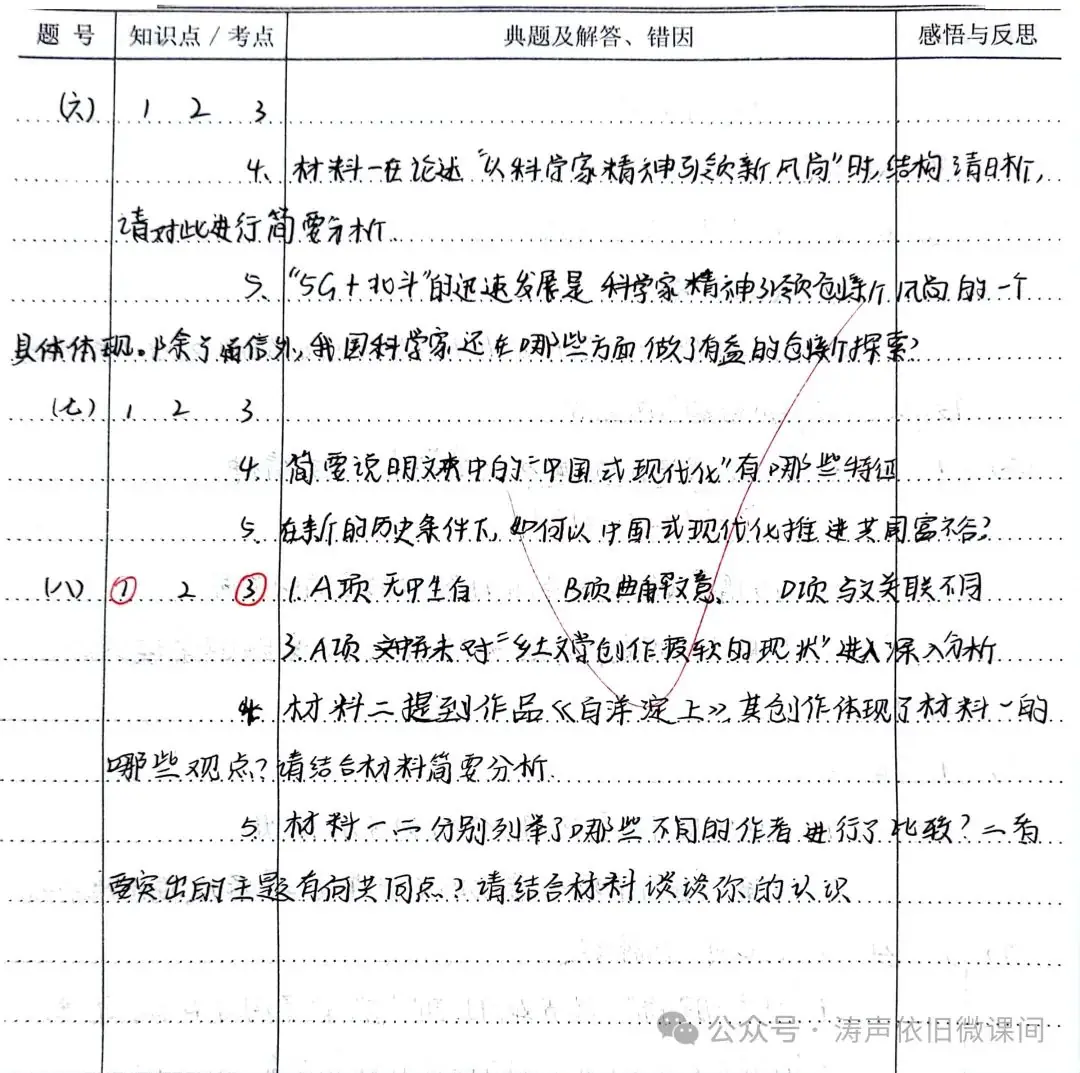 题 号 知识点 / 考点 典题及解答、错因 感悟与反思
(六) 1 2 3
4、材料一在论述“以科学家精神引领新风尚”时,结构清晰,
请对此进行简要分析.
5、“5G+北斗”的迅速发展是科学家精神引领创新风尚的一个
具体体现。除了通信外,我国科学家还在哪些方面做了有益的创新探索?
(七) 1 2 3
4. 简要说明文中的“中国式现代化”有哪些特征
5. 在新的历史条件下,如何以中国式现代化推进共同富裕?
(八) ① 2 ③ 1. A项 无中生有 B项曲解文意、 D项与文关联不同
3. A项 未对“乡土文学创作疲软的现状”进入深入分析
4. 材料二提到作品《白洋淀上》,其创作体现了材料一的
哪些观点?请结合材料简要分析.
5 材料一二分别列举了哪些不同的作者进行了比较?二者
要突出的主题有何共同点?请结合材料谈谈你的认识
公众号·涛声依旧微课间